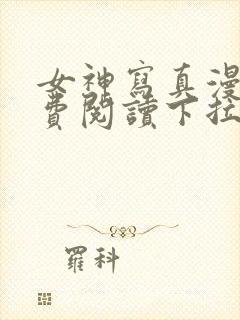 女神寫真漫
費閱讀下拉
羅科